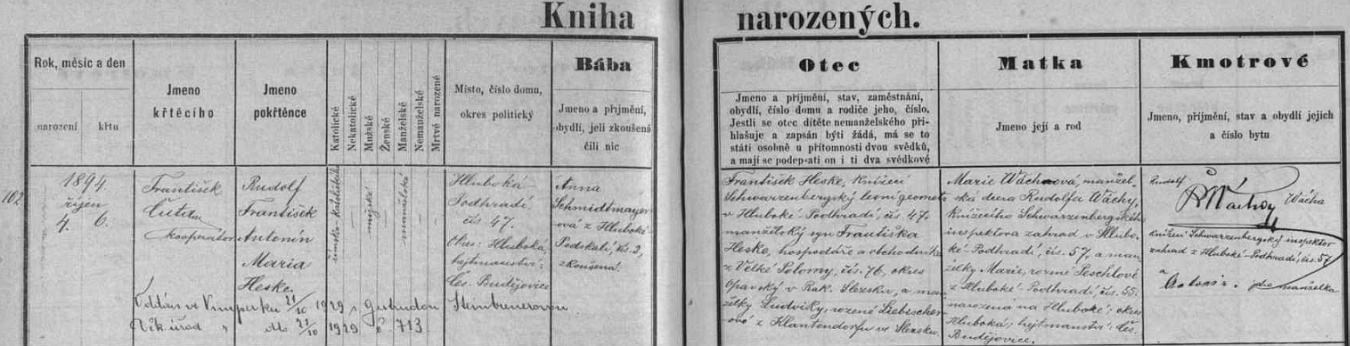 Kniha narozených.
Rok, měsíc a den
narození
křtu
Jméno
křtícího
Jméno
pokřtěnce
Katolické
Nekatolické
Mužské
Ženské
Manželské
Nemanželské
Mrtvě narozené
Místo, číslo domu,
okres politický
Bába
Jméno a příjmení,
obydlí, jeli zkoušená
čili nic
Otec
Jméno a příjmení, stav, zaměstnání,
obydlí, číslo domu a rodiče jeho, číslo.
Jestli se otec dítěte nemanželského při-
hlašuje a zapsán býti žádá, má se to
státi osobně u přítomnosti dvou svědků,
a mají se podepsati on i ti dva svědkové
Matka
Jméno její a rod
Kmotrové
Jméno, příjmení, stav a obydlí jejich
a číslo bytu
102
1894
říjen
4. 6.
František
kooperátor
Rudolf
František
Antonín
Maria
Heske
mužské
manželské
Hluboká
Podhradí
čís. 47.
Okres: Hluboká,
hejtmanství:
Čes. Budějovice
Anna
Schmidtmayer-
ová z Hluboké
Podskalí, čís. 2,
zkoušená.
František Heske, knížecí
Schwarzenberský lesní geometr
v Hluboké-Podhradí, čís. 47.
manželský syn Františka
Heske, hospodáře a obchodníka
z Velké Polomy, čís. 76, okres
Opavský v Rak. Slezsku, a man-
želky Ludviky, rozené Liebischer-
ové z Klantendorfu ve Slezsku.
Marie Wáchová, manžel-
ská dcera Rudolfa Wáchy,
knížecího Schwarzenberského
inspektora zahrad v Hlubo-
ké-Podhradí, čís. 57, a man-
želky Marie, rozené
z Hluboké-Podhradí, čís. 55.
narozená na Hluboké: okres
Hluboká, hejtmanství: Čes.
Budějovice.
Rudolf Wácha
knížecí Schwarzenberský inspektor
zahrad z Hluboké-Podhradí, čís. 57
a
jeho manželka
Oddán ve Vimperku 21/10 1929 s Gertrudou
1929 č. 713